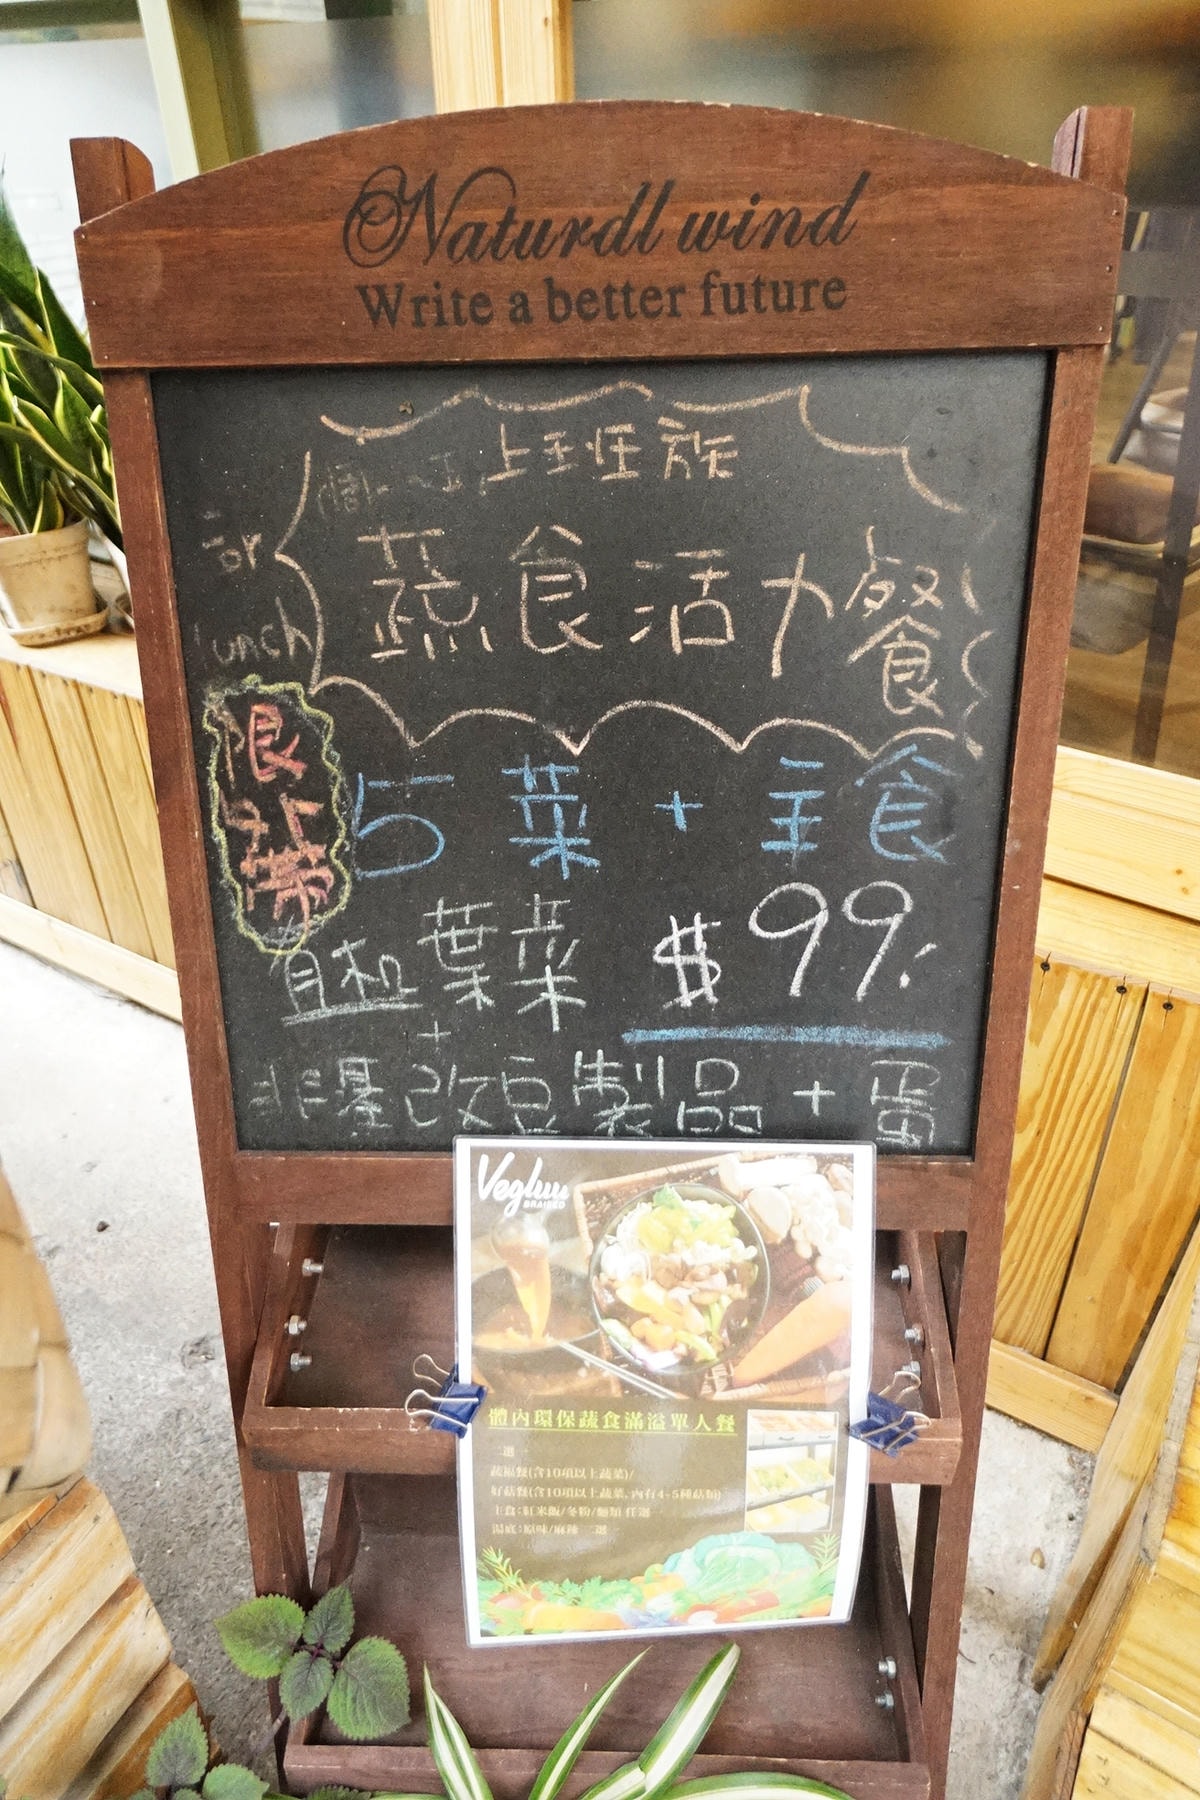 Naturdl wind
Write a better future
上班族
蔬食活力餐
for
lunch
限外帶
5菜 + 主食
葉菜
$99.
+
非基改豆製品 + 蛋
Vegluu
BRAISED
體內環保蔬食滿溢單人餐
二選一
蔬福餐(含10項以上蔬菜)/
好菇餐(含10項以上蔬菜、內有4-5種菇類)
主食:紅米飯/冬粉/麵類 任選一
湯底:原味/麻辣 二選一